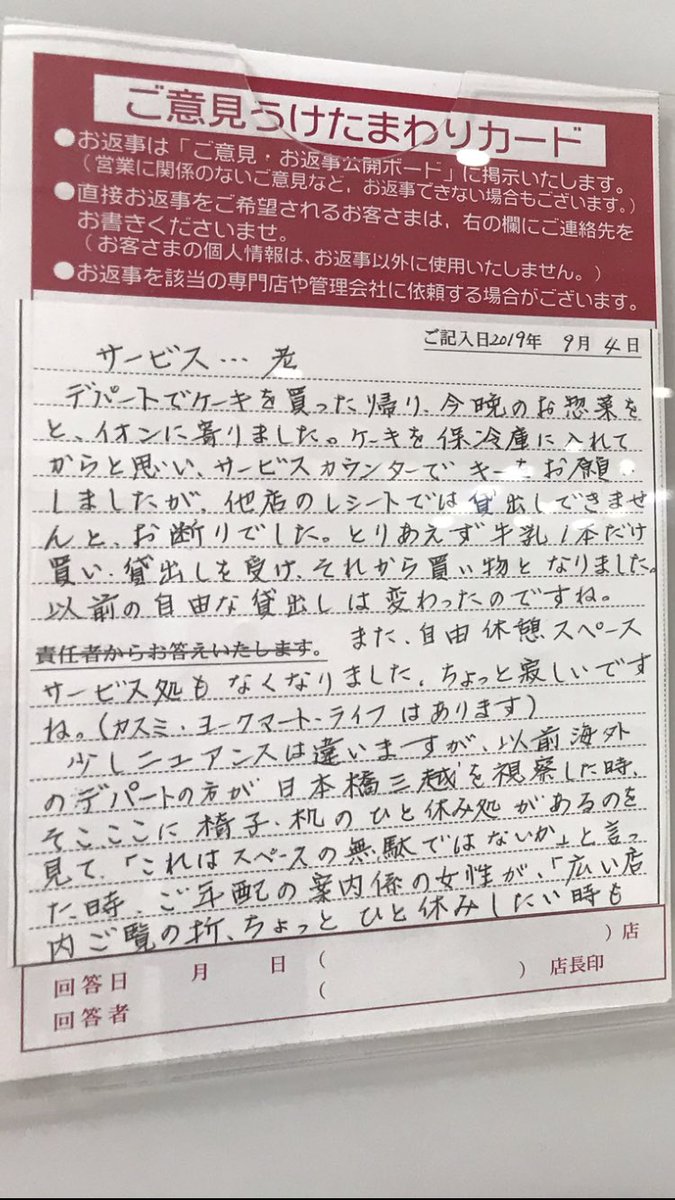 ご意見うけたまわりカード
●お返事は「ご意見・お返事公開ボード」に掲示いたします。
（営業に関係のないご意見など，お返事できない場合もございます。）
●直接お返事をご希望されるお客さまは，右の欄にご連絡先を
お書きくださいませ。
（お客さまの個人情報は、お返事以外に使用いたしません。）
●お返事を該当の専門店や管理会社に依頼する場合がございます。
ご記入日2019年 9月 4日
サービス…考
デパートでケーキを買った帰り、今晩のお惣菜を
と、イオンに寄りました。ケーキを保冷庫に入れて
からと思い、サービスカウンターでキーをお願い
しましたが、他店のレシートでは貸出しできませ
んと、お断りでした。とりあえず牛乳1本だけ
買い、貸出しを受け、それから買い物となりました。
以前の自由な貸出しは変わったのですね。
責任者からお答えいたします。 また、自由休憩スペース
サービス処もなくなりました。ちょっと寂しいです
ね。（カスミ・ヨークマート・ライフはあります）
少しニュアンスは違いますが、以前海外
のデパートの方が日本橋三越を視察した時、
そこここに椅子・机のひと休み処があるのを
見て、「これはスペースの無駄ではないか」と言っ
た時、ご年配の案内係の女性が、「広い店
内ご覧の折、ちょっとひと休みしたい時も
回答日 月 日 （ ）店
回答者 （ ） 店長印